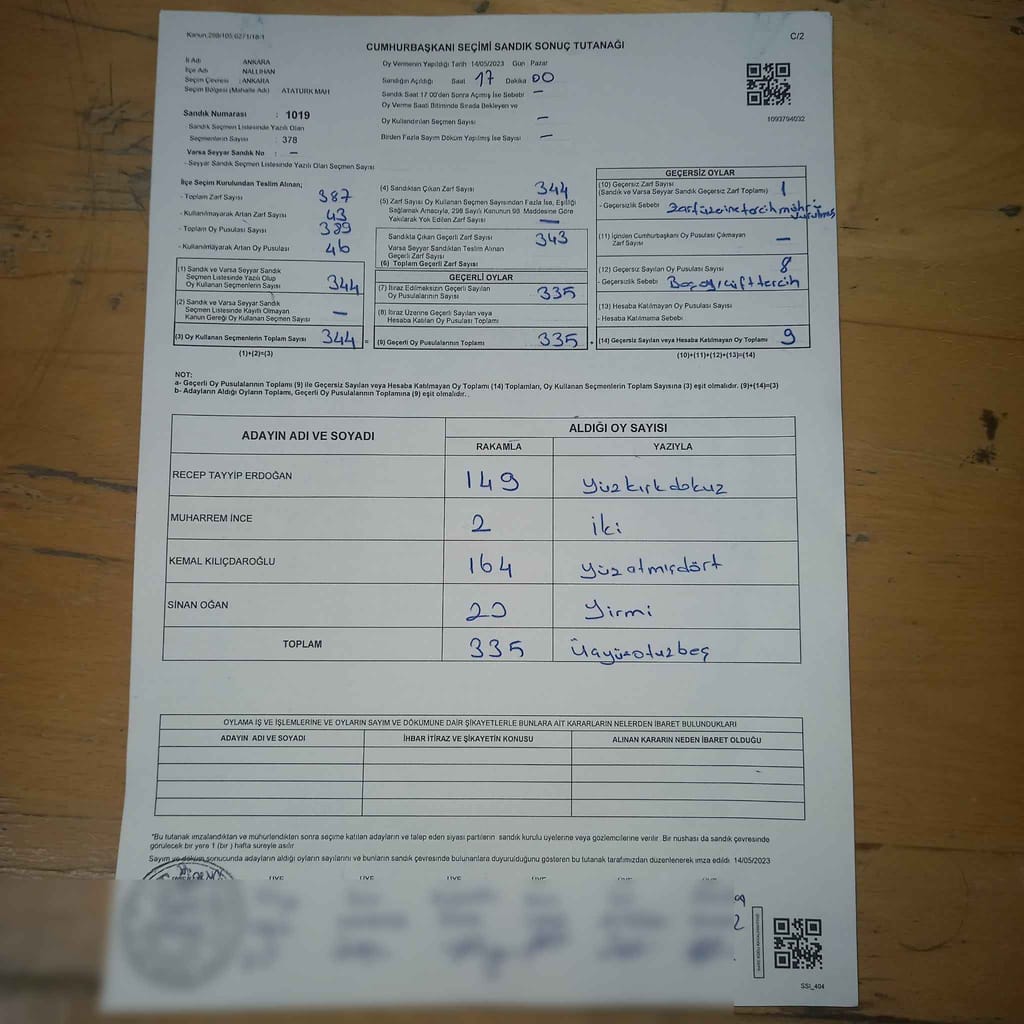 Kanun:298/105,6271/18-1
C/2
CUMHURBAŞKANI SEÇİMİ SANDIK SONUÇ TUTANAĞI
İl Adı ANKARA
İlçe Adı NALLIHAN
Seçim Çevresi : ANKARA
Seçim Bölgesi (Mahalle Adı) ATATÜRK MAH
Oy Vermenin Yapıldığı Tarih 14/05/2023 Gün Pazar
Sandığın Açıldığı Saat 17 Dakika 00
Sandık Saat 17:00'den Sonra Açılmış İse Sebebi –
Oy Verme Saati Bitiminde Sırada Bekleyen ve
Oy Kullandırılan Seçmen Sayısı –
Birden Fazla Sayım Döküm Yapılmış İse Sayısı –
1093794032
Sandık Numarası : 1019
- Sandık Seçmen Listesinde Yazılı Olan
Seçmenlerin Sayısı : 378
Varsa Seyyar Sandık No : –
- Seyyar Sandık Seçmen Listesinde Yazılı Olan Seçmen Sayısı
İlçe Seçim Kurulundan Teslim Alınan;
- Toplam Zarf Sayısı 387
- Kullanılmayarak Artan Zarf Sayısı 43
- Toplam Oy Pusulası Sayısı 389
- Kullanılmayarak Artan Oy Pusulası 46
(1) Sandık ve Varsa Seyyar Sandık
Seçmen Listesinde Yazılı Olup
Oy Kullanan Seçmenlerin Sayısı 344
(2) Sandık ve Varsa Seyyar Sandık
Seçmen Listesinde Kayıtlı Olmayan
Kanun Gereği Oy Kullanan Seçmen Sayısı –
(3) Oy Kullanan Seçmenlerin Toplam Sayısı 344 =
(1)+(2)=(3)
(4) Sandıktan Çıkan Zarf Sayısı 344
(5) Zarf Sayısı Oy Kullanan Seçmen Sayısından Fazla İse, Eşitliği
Sağlamak Amacıyla, 298 Sayılı Kanunun 98. Maddesine Göre
Yakılarak Yok Edilen Zarf Sayısı –
Sandıkta Çıkan Geçerli Zarf Sayısı 343
Varsa Seyyar Sandıktan Teslim Alınan
Geçerli Zarf Sayısı
(6) Toplam Geçerli Zarf Sayısı
GEÇERLİ OYLAR
(7) İtiraz Edilmeksizin Geçerli Sayılan
Oy Pusulalarının Sayısı 335
(8) İtiraz Üzerine Geçerli Sayılan veya
Hesaba Katılan Oy Pusulası Toplamı
(9) Geçerli Oy Pusulalarının Toplamı 335 +
GEÇERSİZ OYLAR
(10) Geçersiz Zarf Sayısı
(Sandık ve Varsa Seyyar Sandık Geçersiz Zarf Toplamı) 1
- Geçersizlik Sebebi zarf üzerine tercih mührü vurulmuş
(11) İçinden Cumhurbaşkanı Oy Pusulası Çıkmayan
Zarf Sayısı –
(12) Geçersiz Sayılan Oy Pusulası Sayısı 8
- Geçersizlik Sebebi Boş oy, çift tercih
(13) Hesaba Katılmayan Oy Pusulası Sayısı
- Hesaba Katılmama Sebebi
(14) Geçersiz Sayılan veya Hesaba Katılmayan Oy Toplamı 9
(10)+(11)+(12)+(13)=(14)
NOT:
a- Geçerli Oy Pusulalarının Toplamı (9) ile Geçersiz Sayılan veya Hesaba Katılmayan Oy Toplamı (14) Toplamları, Oy Kullanan Seçmenlerin Toplam Sayısına (3) eşit olmalıdır. (9)+(14)=(3)
b- Adayların Aldığı Oyların Toplamı, Geçerli Oy Pusulalarının Toplamına (9) eşit olmalıdır. .
ADAYIN ADI VE SOYADI ALDIĞI OY SAYISI
RAKAMLA YAZIYLA
RECEP TAYYİP ERDOĞAN 149 yüzkırkdokuz
MUHARREM İNCE 2 iki
KEMAL KILIÇDAROĞLU 164 yüzatmışdört
SİNAN OĞAN 20 yirmi
TOPLAM 335 Üçyüzotuzbeş
OYLAMA İŞ VE İŞLEMLERİNE VE OYLARIN SAYIM VE DÖKÜMÜNE DAİR ŞİKAYETLERLE BUNLARA AİT KARARLARIN NELERDEN İBARET BULUNDUKLARI
ADAYIN ADI VE SOYADI İHBAR İTİRAZ VE ŞİKAYETİN KONUSU ALINAN KARARIN NEDEN İBARET OLDUĞU
"Bu tutanak imzalandıktan ve mühürlendikten sonra seçime katılan adayların ve talep eden siyasi partilerin sandık kurulu üyelerine veya gözlemcilerine verilir. Bir nüshası da sandık çevresinde
görülecek bir yere 1 (bir ) hafta süreyle asılır
Sayım ve döküm sonucunda adayların aldığı oyların sayılarını ve bunların sandık çevresinde bulunanlara duyurulduğunu gösteren bu tutanak tarafımızdan düzenlenerek imza edildi. 14/05/2023
ÜYE ÜYE ÜYE ÜYE ÜYE ÜYE
SSI_404